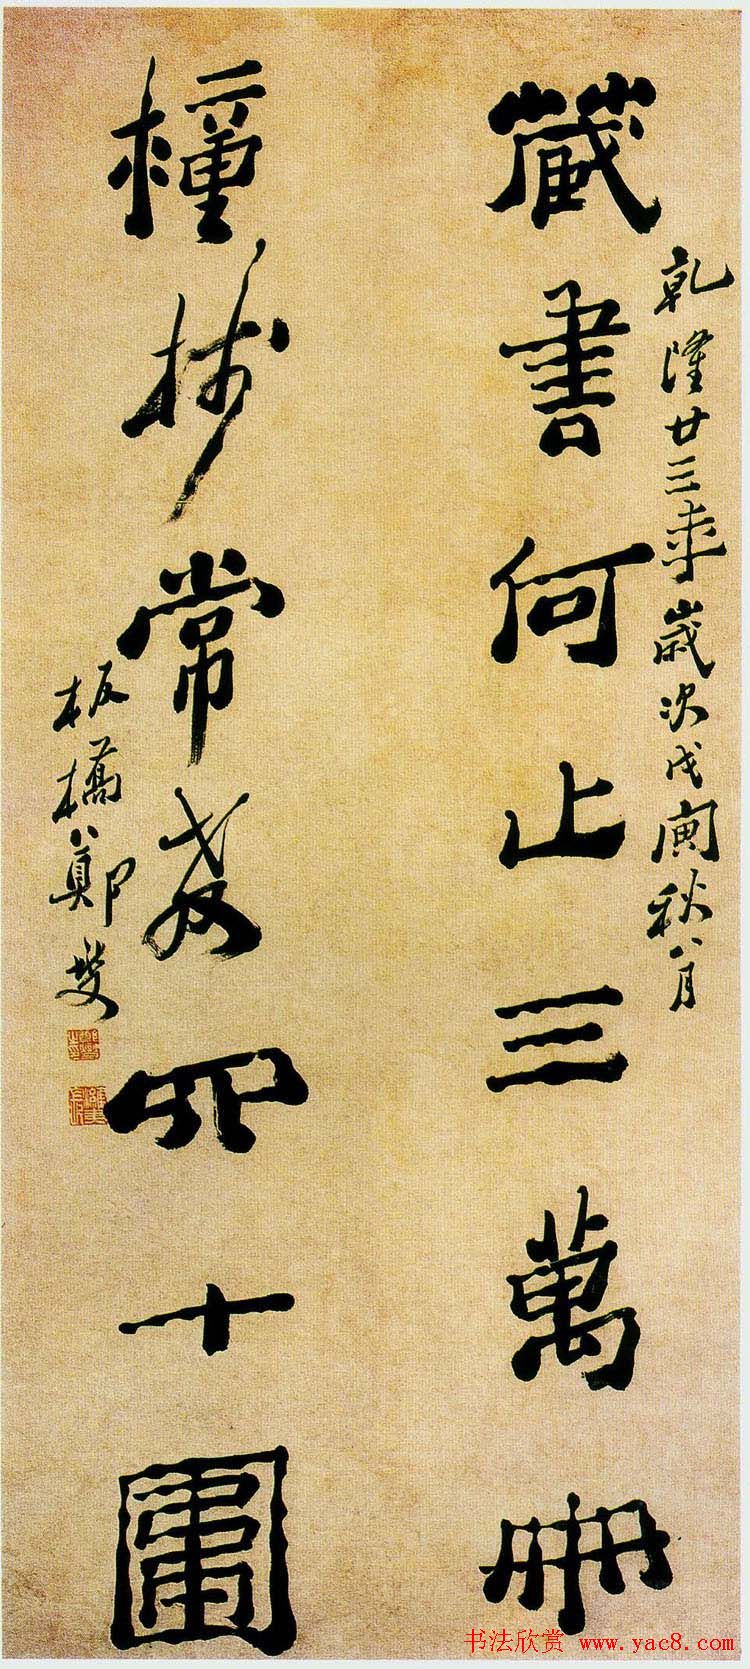 乾隆廿三年歲次戊寅秋八月
藏書何止三萬冊
種樹常教四十圍
板橋鄭燮
书法欣赏 www.yac8.com